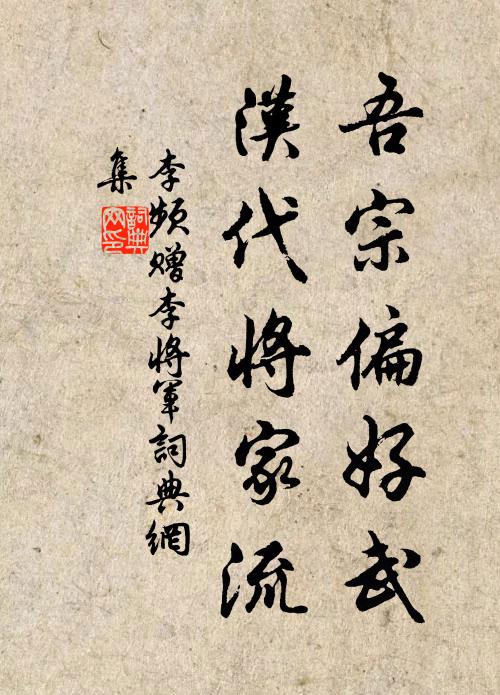 吾宗偏好武
漢代將家流
李頻贈李將軍詞典網
集
詞典
网印